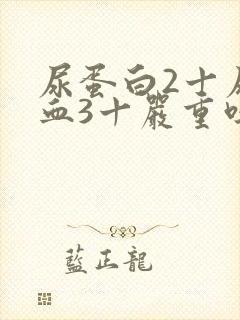 尿蛋白2十
血3十嚴重
藍正龍